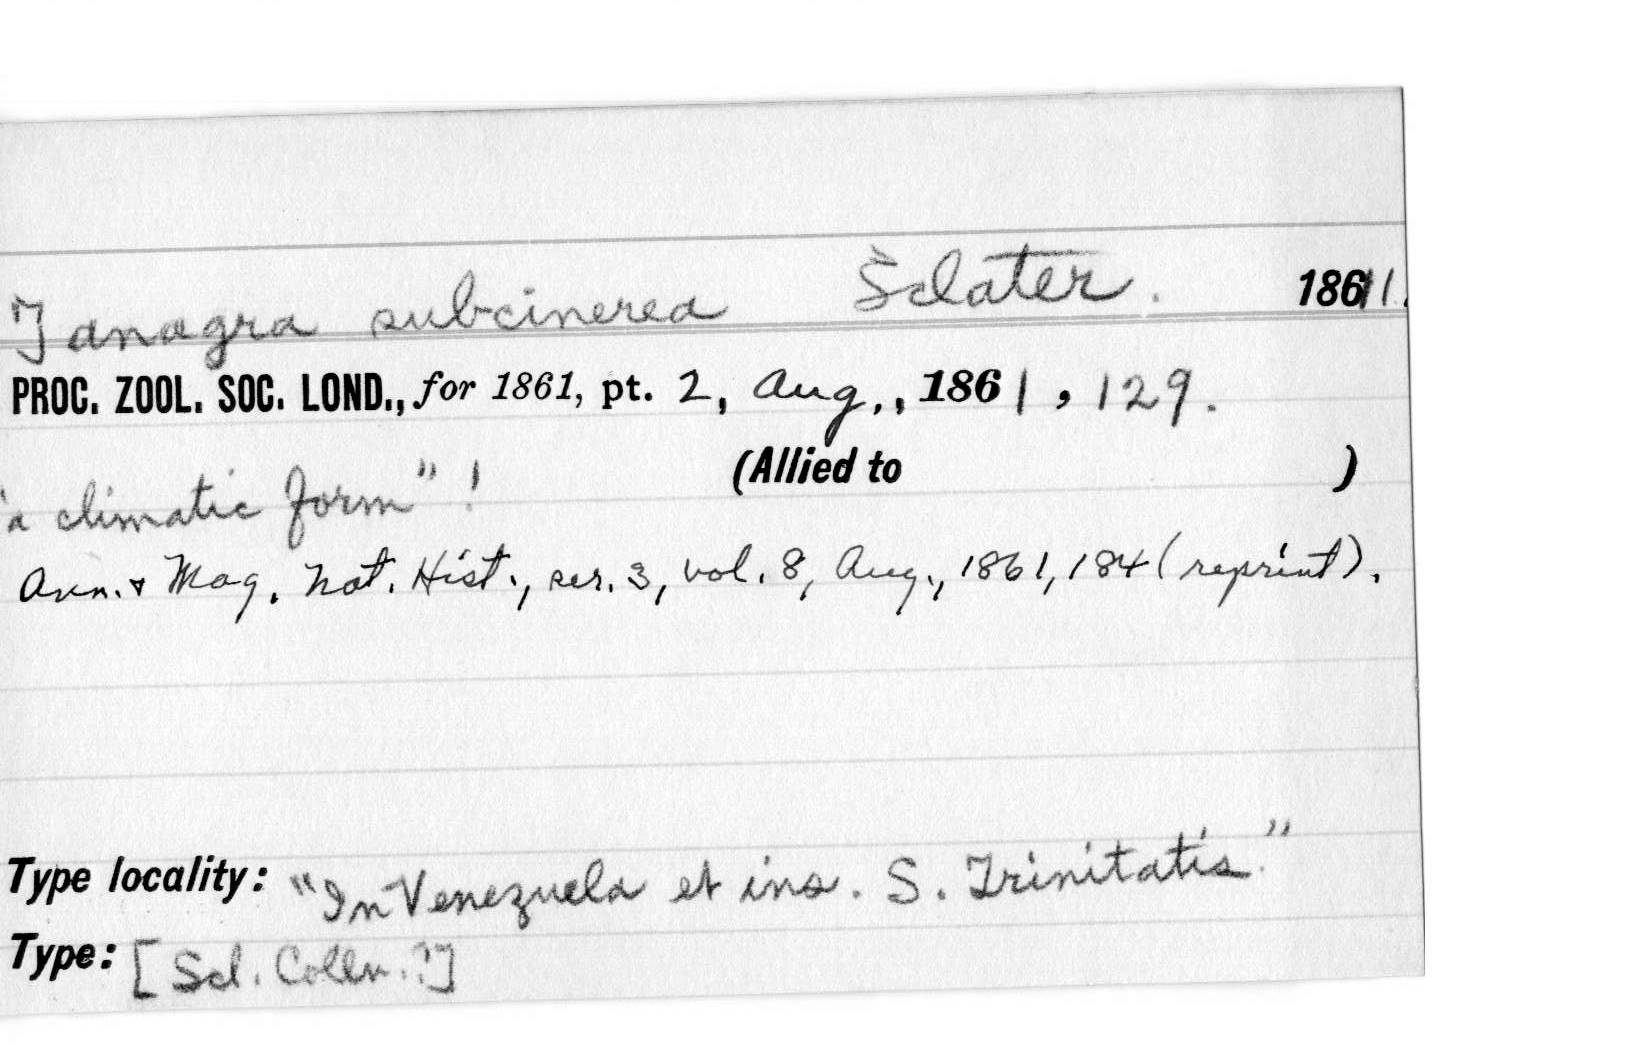 Tanagra subcinerea Sclater. 1861.
PROC. ZOOL. SOC. LOND., for 1861, pt. 2, Aug., , 1861 , 129.
(Allied to )
"a climatic form" !
Ann. & Mag. Nat. Hist., ser. 3, vol. 8, Aug., 1861, 184 (reprint).
Type locality: "In Venezuela et ins. S. Trinitatis."
Type: [Scl. Colln.?]